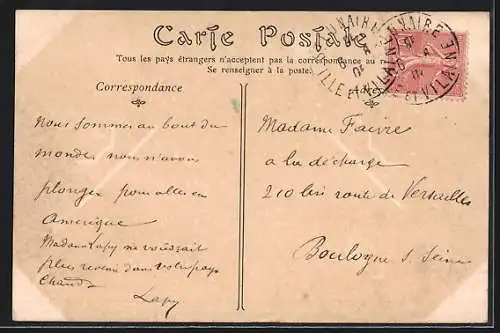 Carte Postale
Tous les pays étrangers n'acceptent pas la correspondance au
Se renseigner à la poste.
Correspondance
Nous sommes au bout du
monde nous n'avons
plonger pour aller en
Amerique
Madame Lapy ne voudrait
plus revenir dans votre pays
Chaud
Lapy
Madame Faivre
a la décharge
210 bis route de Versailles
Boulogne s. Seine
DINARD
ILLE ET VILAINE